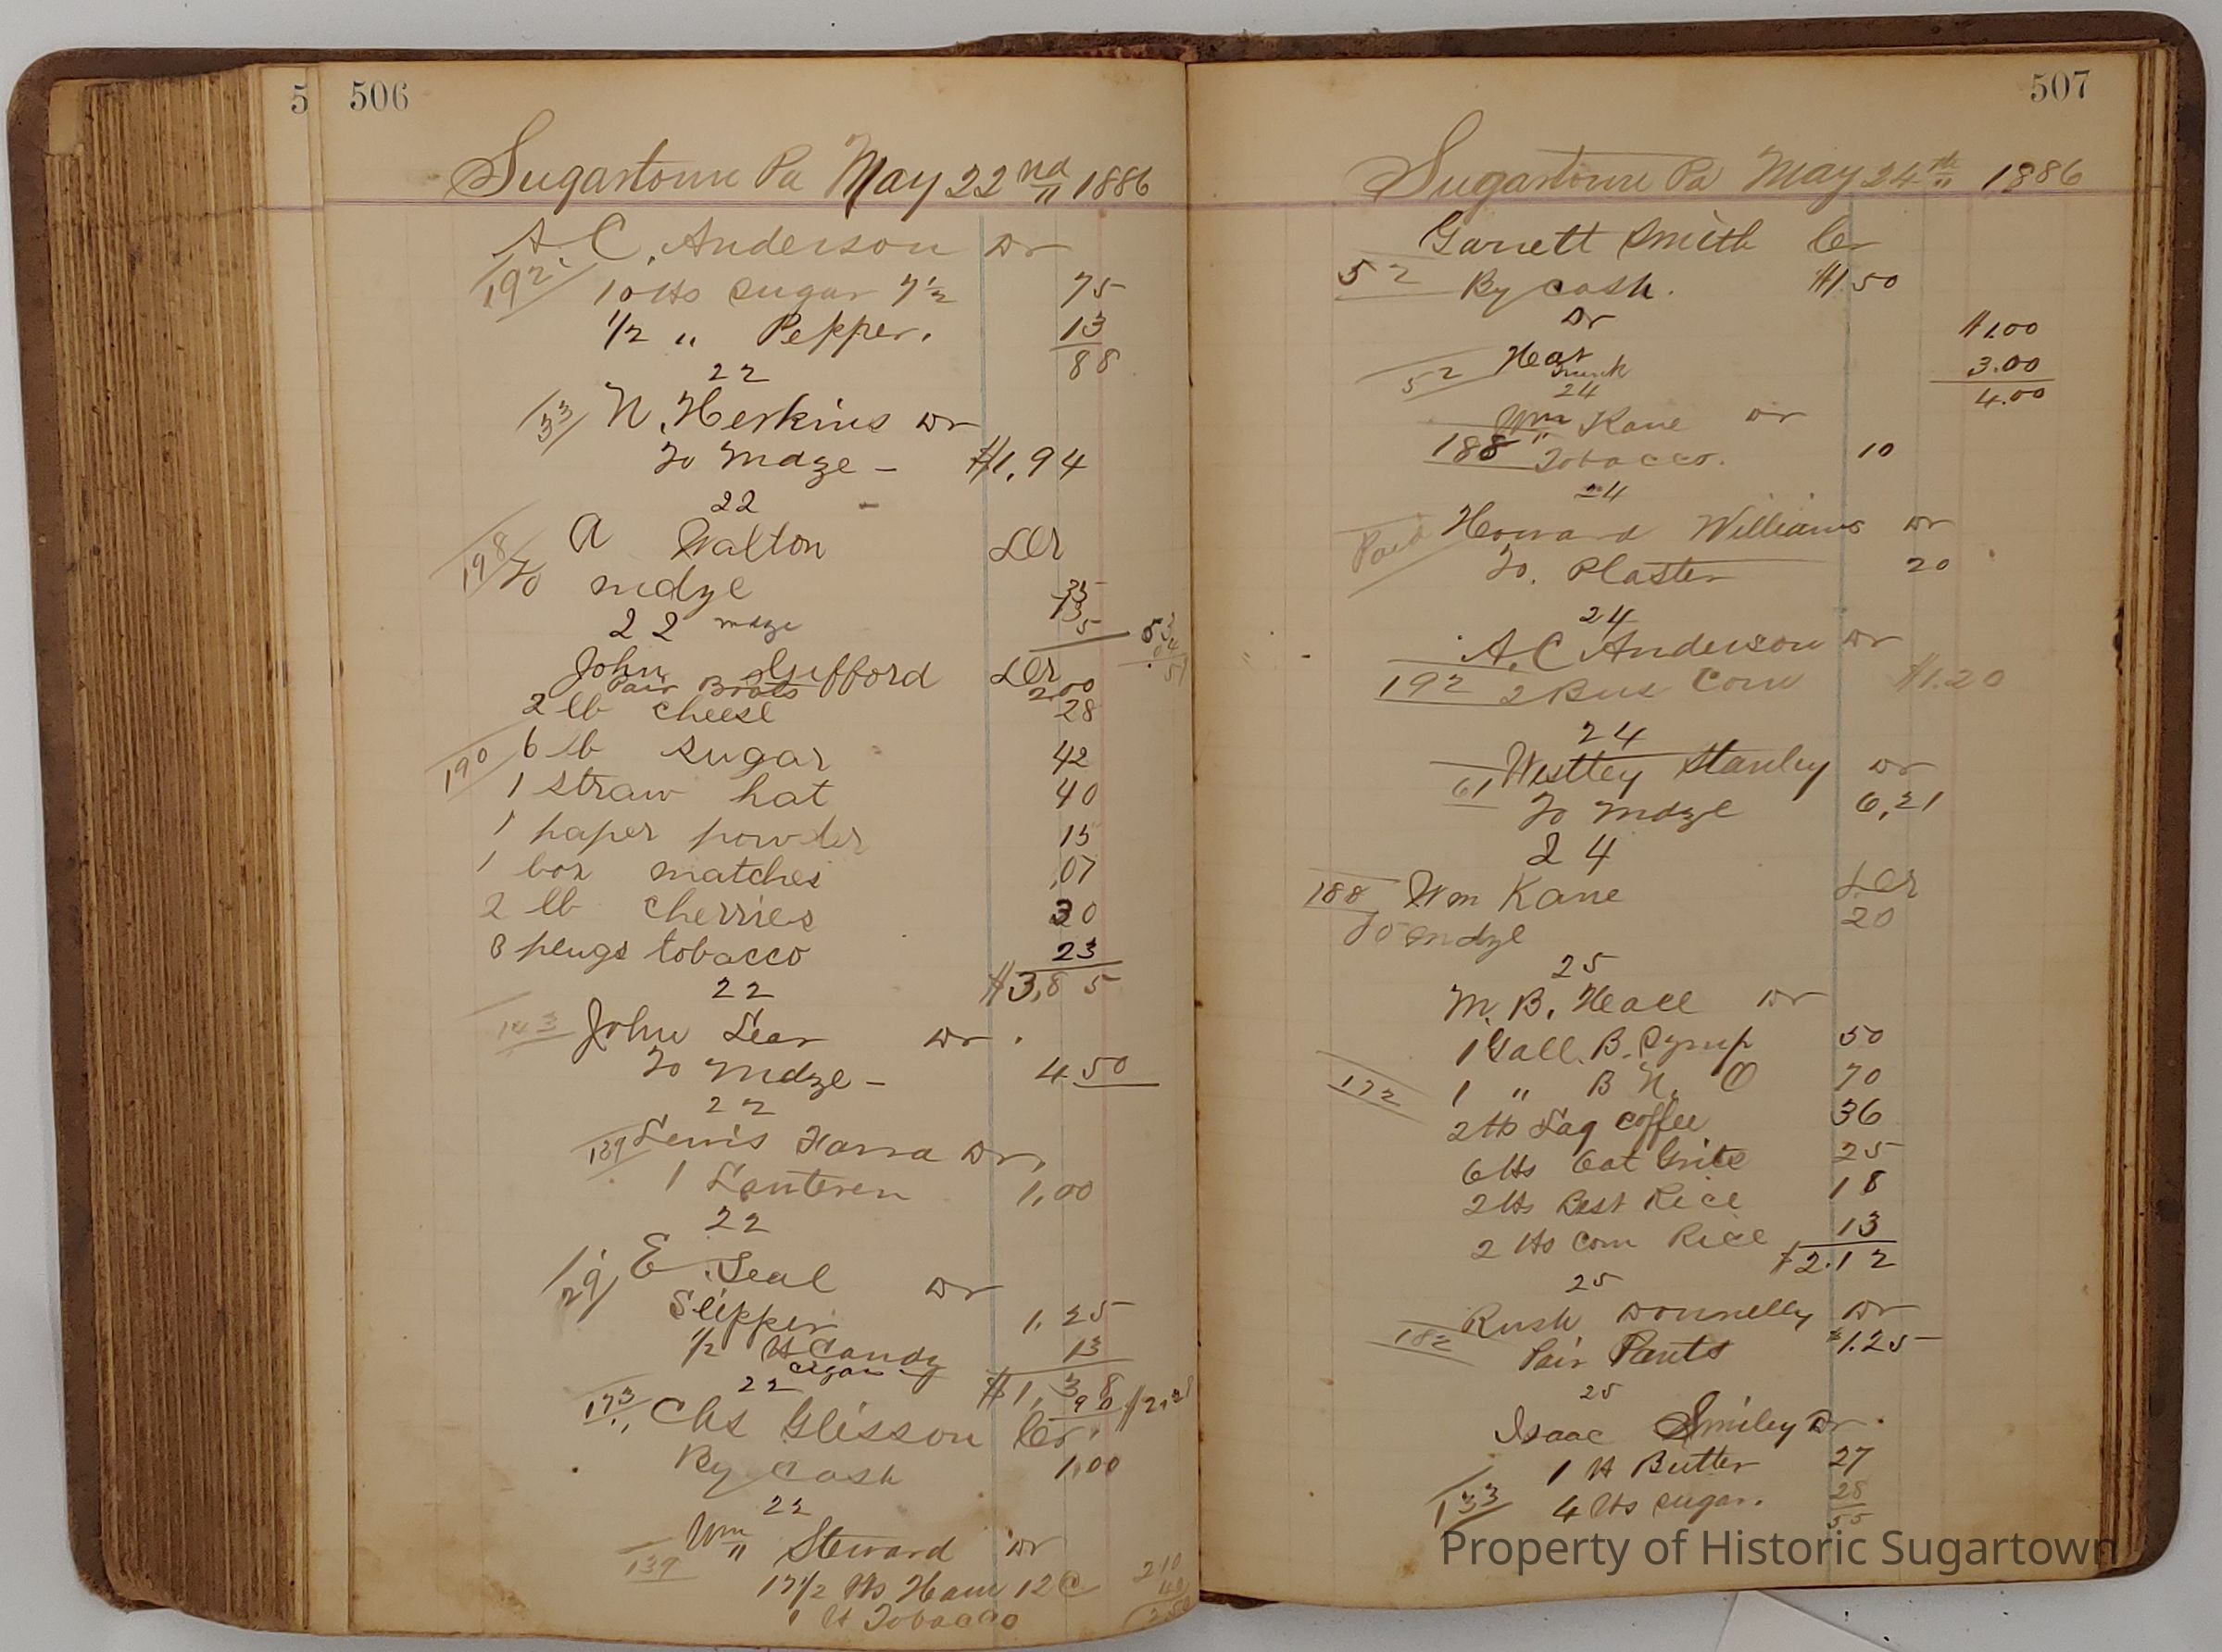 5 506
Sugartown Pa May 22nd 1886
A. C. Anderson Dr
192 10 lbs Sugar 7½ 75
1/2 " Pepper. 13
88
22
33 N. Herkins Dr
To Mdze - $1,94
22
A Walton Dr
198 To mdze 35
13
22 mdze 5 53
John Gufford Dr
Pair Boots 2.00
2 lb cheese 28
190 6 lb sugar 42
1 straw hat 40
1 paper powder 15
1 box matches .07
2 lb cherries 30
3 plugs tobacco 23
22 $3,85
143 John Lear Dr.
To Mdze - 4 50
22
189 Lewis Harra Dr,
1 Lanteren 1,00
22
129 E. Seal Dr
Slipper 1,25
1/2 lb Candy 13
cigars
22 $1,38
90 $2.28
173 Chs Glisson Cr.
By Cash 1.00
22
Wm Steward Dr
139 17 1/2 lbs Ham 12 C 210
1 lb Tobacco 40
250
507
Sugartown Pa May 24th 1886
Garrett Smith Cr
52 By Cash. $1.50
Dr $1.00
52 Heat 3.00
24 4.00
Wm Kane Dr
188 Tobacco. 10
24
Paid Howard Williams Dr
To. Plaster 20
24
A. C Anderson Dr
192 2 Bus Corn $1.20
24
61 Westley Stanley Dr
To Mdze 6,21
24
188 Wm Kane Dr
To mdze 20
25
M. B. Heall Dr
1 Gall. B. Syrup 50
172 1 " B N. O 70
2 lbs Lag Coffee 36
6 lbs Oat Grits 25
2 lbs Best Rice 18
2 lbs Com Rice 13
$2.12
25
Rush Donnelly Dr
182 Pair Pants $1.25
25
Isaac Smiley Dr.
1 lb Butter 27
133 4 lbs sugar. 28
55
Property of Historic Sugartown